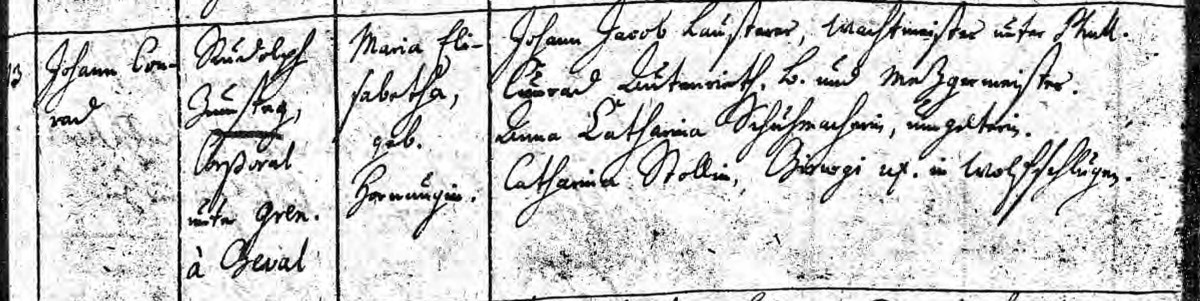 13 Johann Con-
rad
Rudolph
Zumsteg,
Corporal
unter Gren.
à Cheval
Maria Eli-
sabetha,
geb.
Hornungin.
Johann Jacob Lausterer, Wachtmeister unter
Conrad Autenrieth, B. und Mezgermeister.
Anna Catharina Schuhmacherin, umgelterin.
Catharina Stollin, Chirurgi ux. in Wolfschlugen.